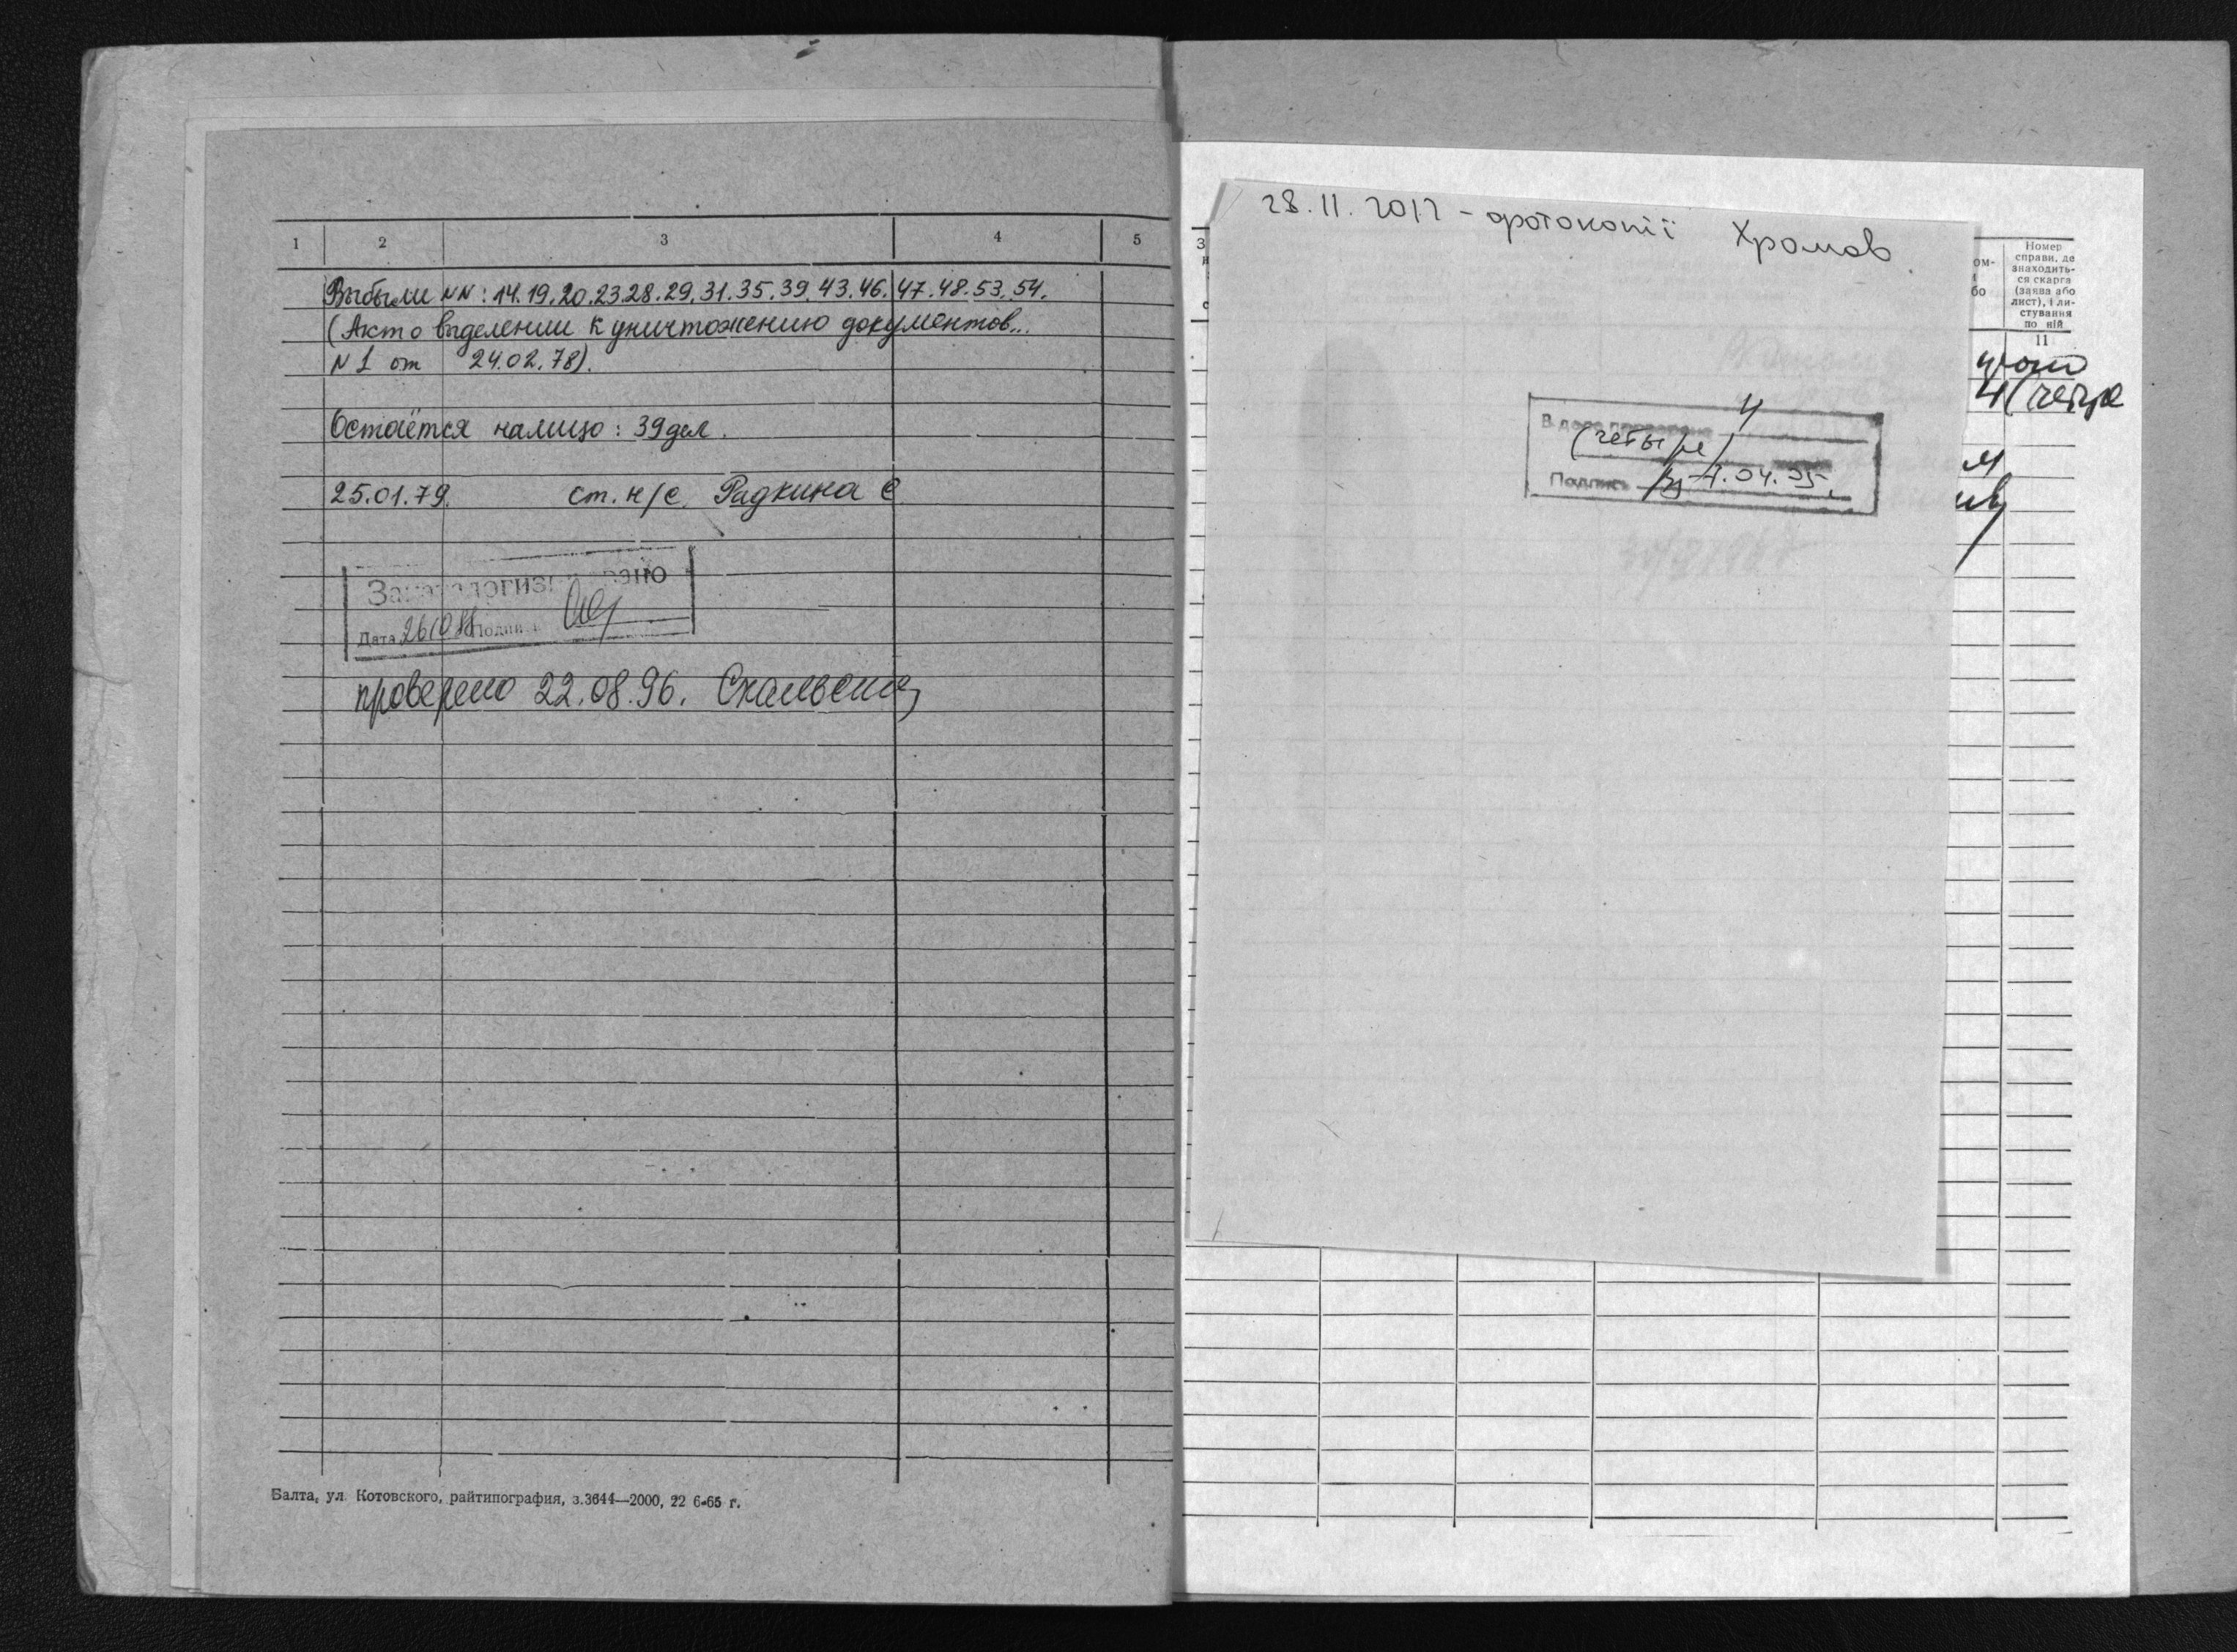 1 2 3 4 5
Выбыли NN: 14.19.20.23.28.29.31.35.39.43.46.47.48.53.54.
(Акт о выделении к уничтожению документов...
N 1 от 24.02.78).
Остаётся налицо: 39 дел.
25.01.79. ст. н/с. Радкина С
Закаталогизировано
Дата 26.10.88 Подпись
проверено 22.08.96.
Балта, ул. Котовского, райтипография, з.3644—2000, 22 6-65 г.
28.11.2012 - фотокопії Хромов.
В деле проверено 4
(четыре)
Подпись 4.04.05.
Номер
справи, де
знаходить-
ся скарга
(заява або
лист), і ли-
стування
по ній
11
4 (четыре